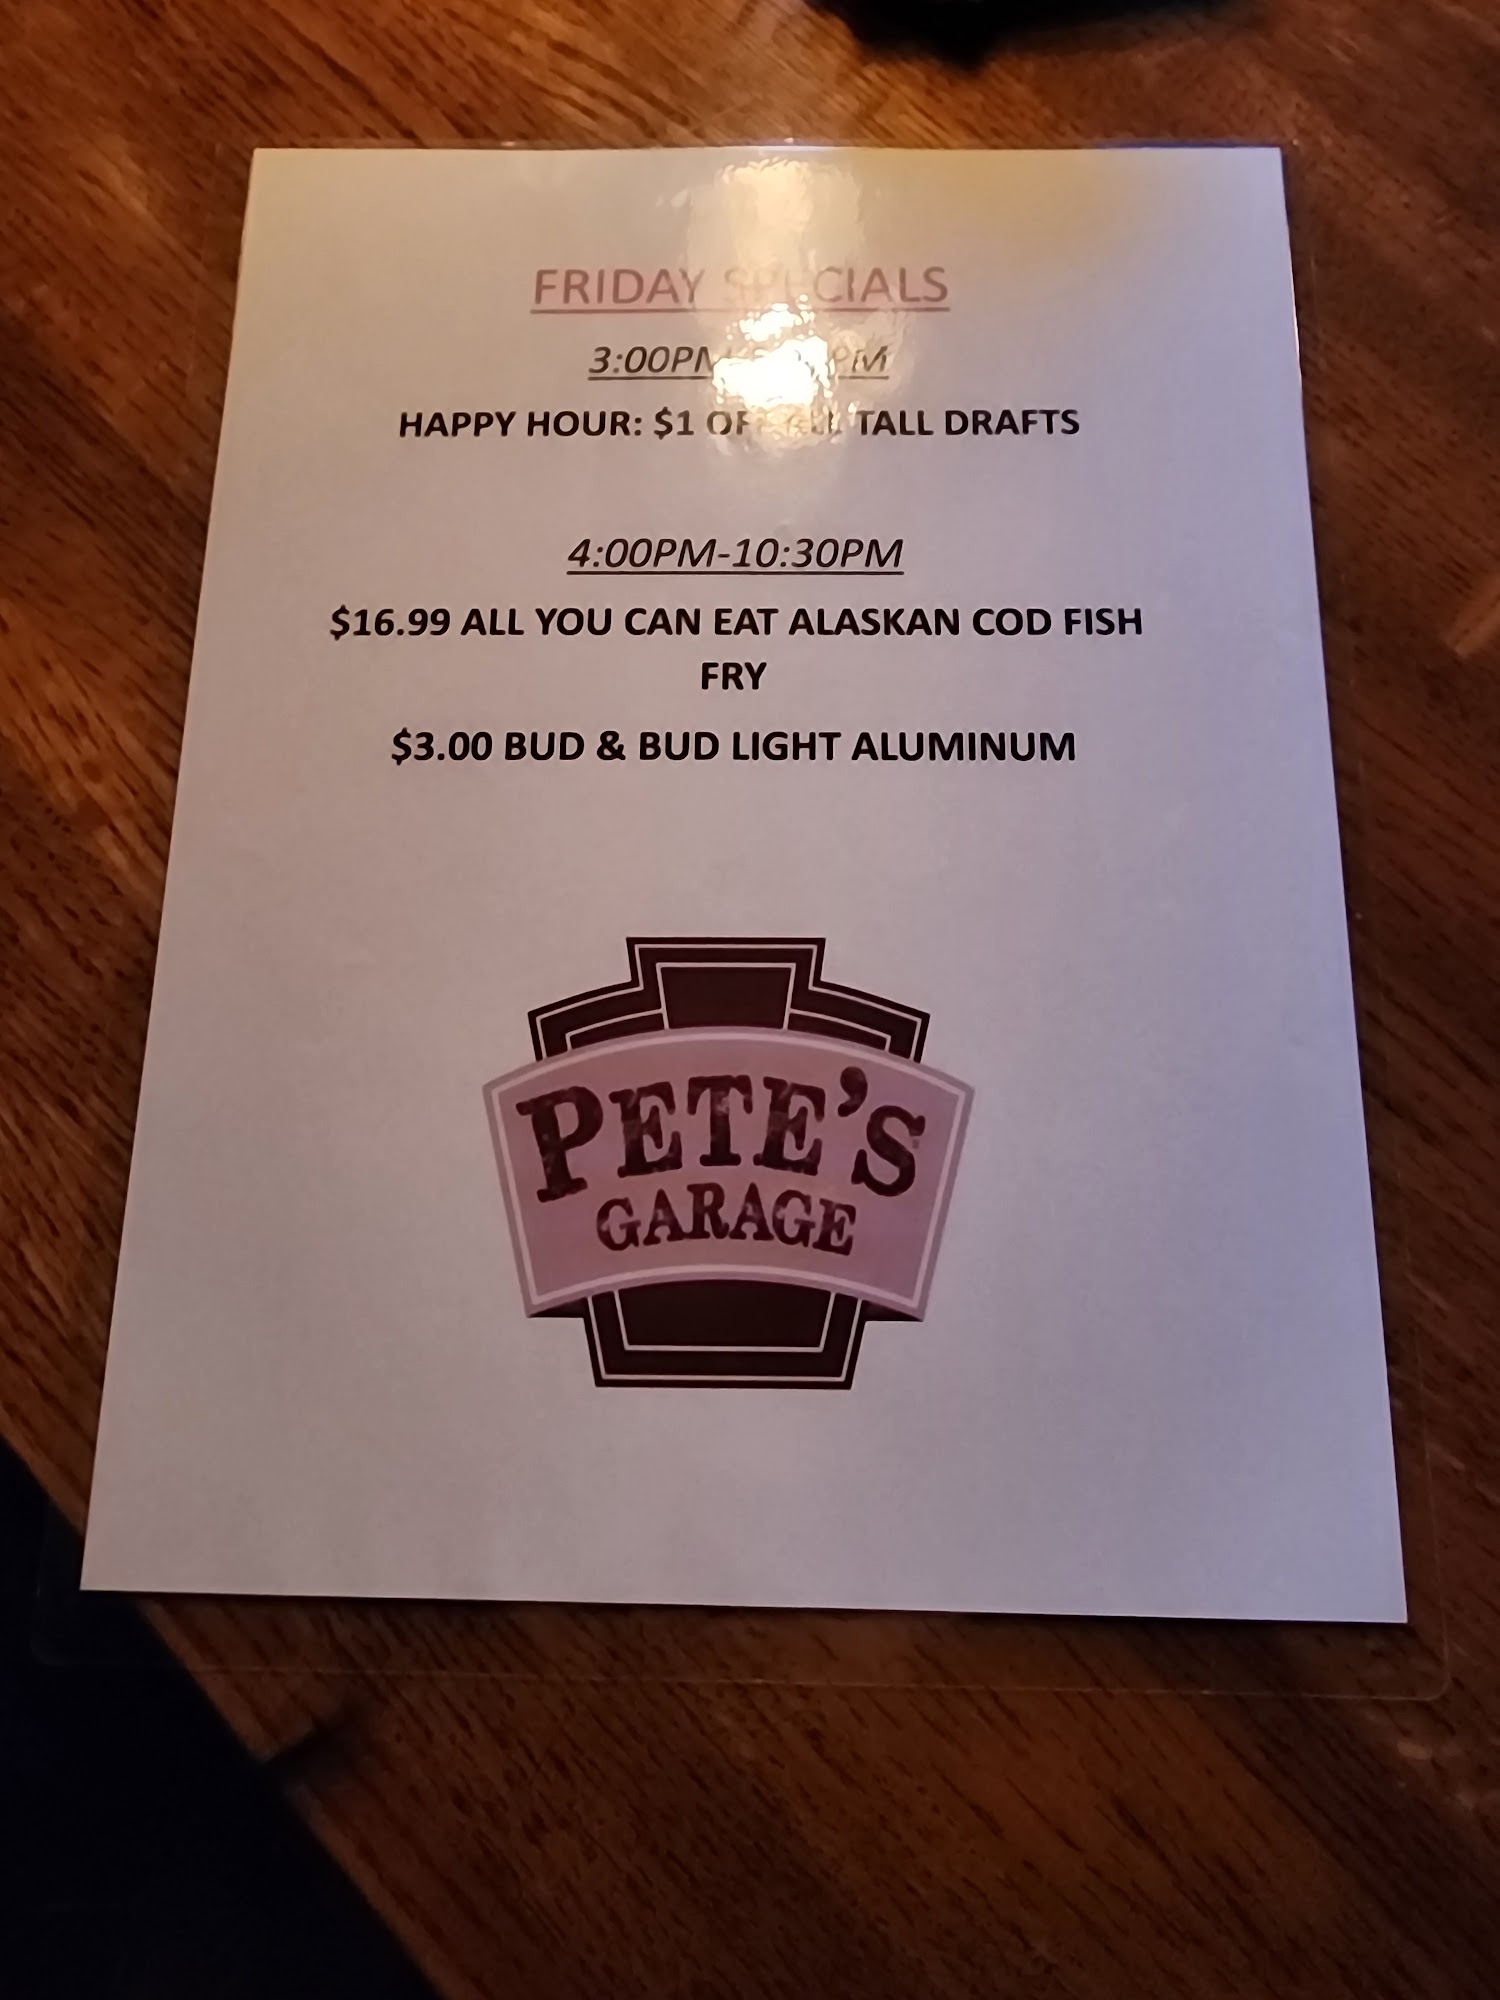 FRIDAY SPECIALS
3:00PM PM
HAPPY HOUR: $1 OFF ALL TALL DRAFTS
4:00PM-10:30PM
$16.99 ALL YOU CAN EAT ALASKAN COD FISH
FRY
$3.00 BUD & BUD LIGHT ALUMINUM
PETE'S
GARAGE